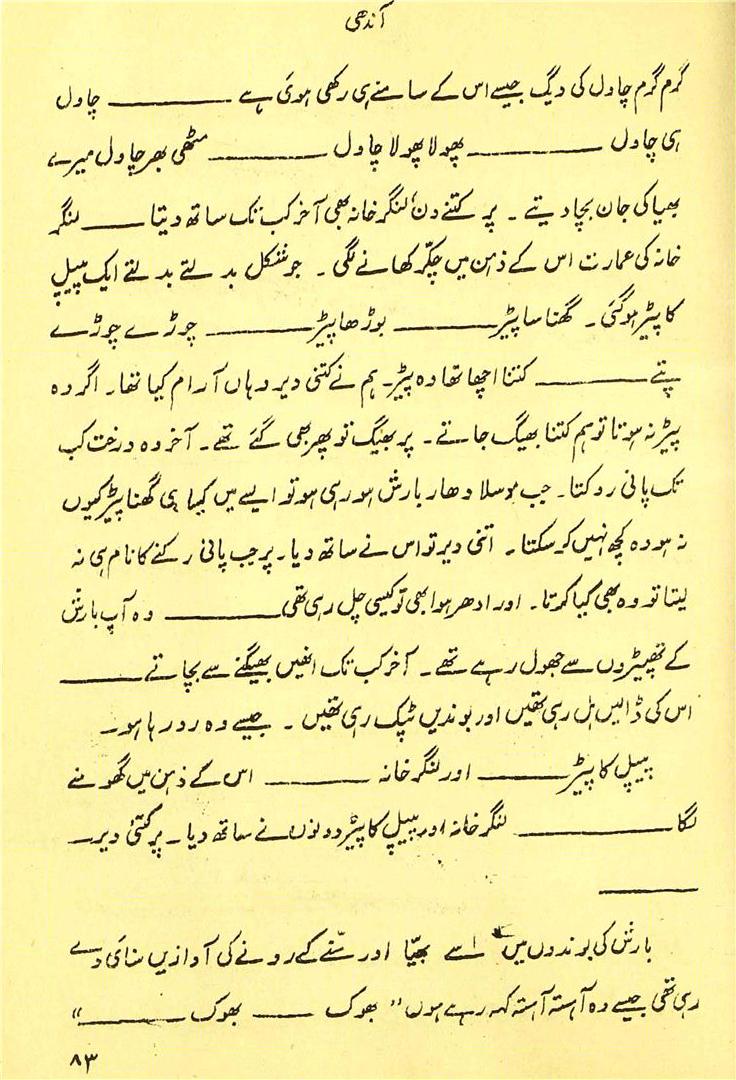 آندھی
گرم گرم چاول کی دیگ جیسے اس کے سامنے ہی رکھی ہوئی ہے ـــــــــ چاول
ہی چاول ـــــــــ پھولا پھولا چاول ـــــــــ مٹھی بھر چاول میرے
بھیا کی جان بچا دیتے ۔ پر کتنے دن، لنگر خانہ بھی آخر کب تک ساتھ دیتا ـــــــــ لنگر
خانہ کی عمارت اس کے ذہن میں چکّر کھانے لگی ۔ جو شکل بدلتے بدلتے ایک پیپل
کا پیڑ ہو گئی ۔ گھنا سا پیڑ ـــــــــ بوڑھا پیڑ ـــــــــ چوڑے چوڑے
پتے ـــــــــ کتنا اچھا تھا وہ پیڑ۔ ہم نے کتنی دیر وہاں آرام کیا تھا۔ اگر وہ
پیڑ نہ ہوتا تو ہم کتنا بھیگ جاتے ۔ پر بھیگ تو پھر بھی گئے تھے ۔ آخر وہ درخت کب
تک پانی روکتا ۔ جب موسلا دھار بارش ہو رہی ہو تو ایسے میں کیسا ہی گھنا پیڑ کیوں
نہ ہو وہ کچھ نہیں کر سکتا ۔ اتنی دیر تو اس نے ساتھ دیا۔ پر جب پانی رکنے کا نام ہی نہ
لیتا تو وہ بھی کیا کرتا ۔ اور ادھر ہوا بھی تو کیسی چل رہی تھی ـــــــــ وہ آپ بارش
کے تھپیڑوں سے جھول رہے تھے ۔ آخر کب تک انھیں بھیگنے سے بچاتے ـــــــــ
اس کی ڈالیں ہل رہی تھیں اور بوندیں ٹپک رہی تھیں ۔ جیسے وہ رو رہا ہو ۔
پیپل کا پیڑ ـــــــــ اور لنگر خانہ ـــــــــ اس کے ذہن میں گھومنے
لگا ـــــــــ لنگر خانہ اور پیپل کا پیڑ دونوں نے ساتھ دیا ۔ پر کتنی دیر ـــ
ـــــــــ
بارش کی بوندوں میں اسے بھیّا اور منّے کے رونے کی آوازیں سنائی دے
رہی تھی جیسے وہ آہستہ آہستہ کہہ رہے ہوں " بھوک ـــــــــ بھوک ـــــــــ "
۸۳